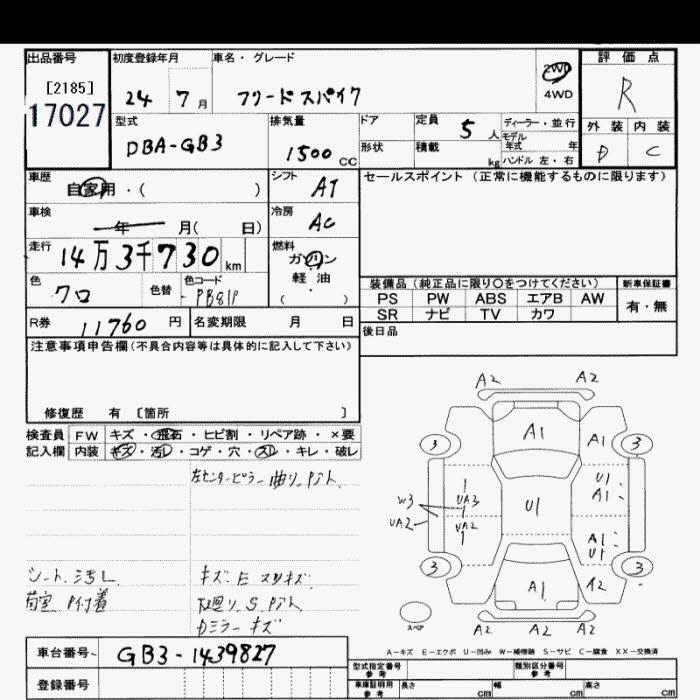 出品番号 初度登録年月 車名・グレード 評価点
[2185] 24 7月 フリードスパイク 2WD 4WD R
17027
型式 DBA-GB3 排気量 1500 CC ドア 形状 定員 5人 積載 kg ディーラー・並行 モデル年式 年 ハンドル 左・右 外装 内装
D C
車歴 自家用・( ) シフト AT セールスポイント(正常に機能するものに限ります)
車検 年 月( 日) 冷房 AC
走行 14万3千730km 燃料 ガソリン 軽油 ( )
色 クロ 色替 色コード PB81P
装備品(純正品に限り○をつけてください) 新車保証書
PS PW ABS エアB AW 有・無
SR ナビ TV カワ
R券 11760円 名変期限 月 日 後日品
注意事項申告欄(不具合内容等は具体的に記入して下さい)
修復歴 有 [箇所 ]
検査員 FW キズ・飛石・ヒビ割・リペア跡・×要
記入欄 内装 キズ・汚レ・コゲ・穴・スレ・キレ・破レ
左センターピラー曲リ、Pアト、
シート汚レ キズ E スリキズ
荷室 P付着 下廻リ S Pアト
Dミラーキズ
A2 A2
A1 A1
3 3
U1 A1
W3 UA3 U1
UA2 UA2 A1 U1
3 3
A1 A2
スペア A2 A2 A2
A-キズ E-エクボ U-凹み W-補修跡 S-サビ C-腐食 XX-交換済
車台番号 GB3-1439827
登録番号
型式指定番号 参考 類別区分番号 参考
車庫証明用 参考 長さ cm 幅 cm 高さ cm